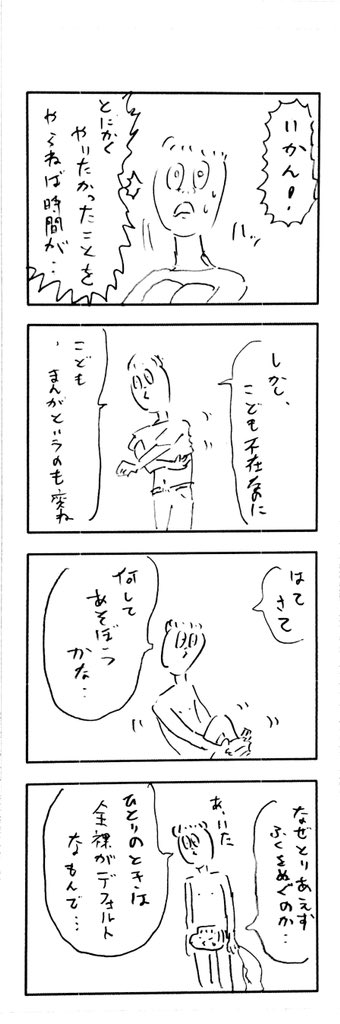 いかん!
ハッ
とにかく
やりたかったことを
やらねば時間が‥
しかし、
こども不在なに
こども
まんがというのも変ね
、
はて
さて
何して
あそぼう
かな‥
なぜとりあえず
ふくをぬぐのか‥
あ、いた
ひとりのときは
全裸がデフォルト
なもんで…